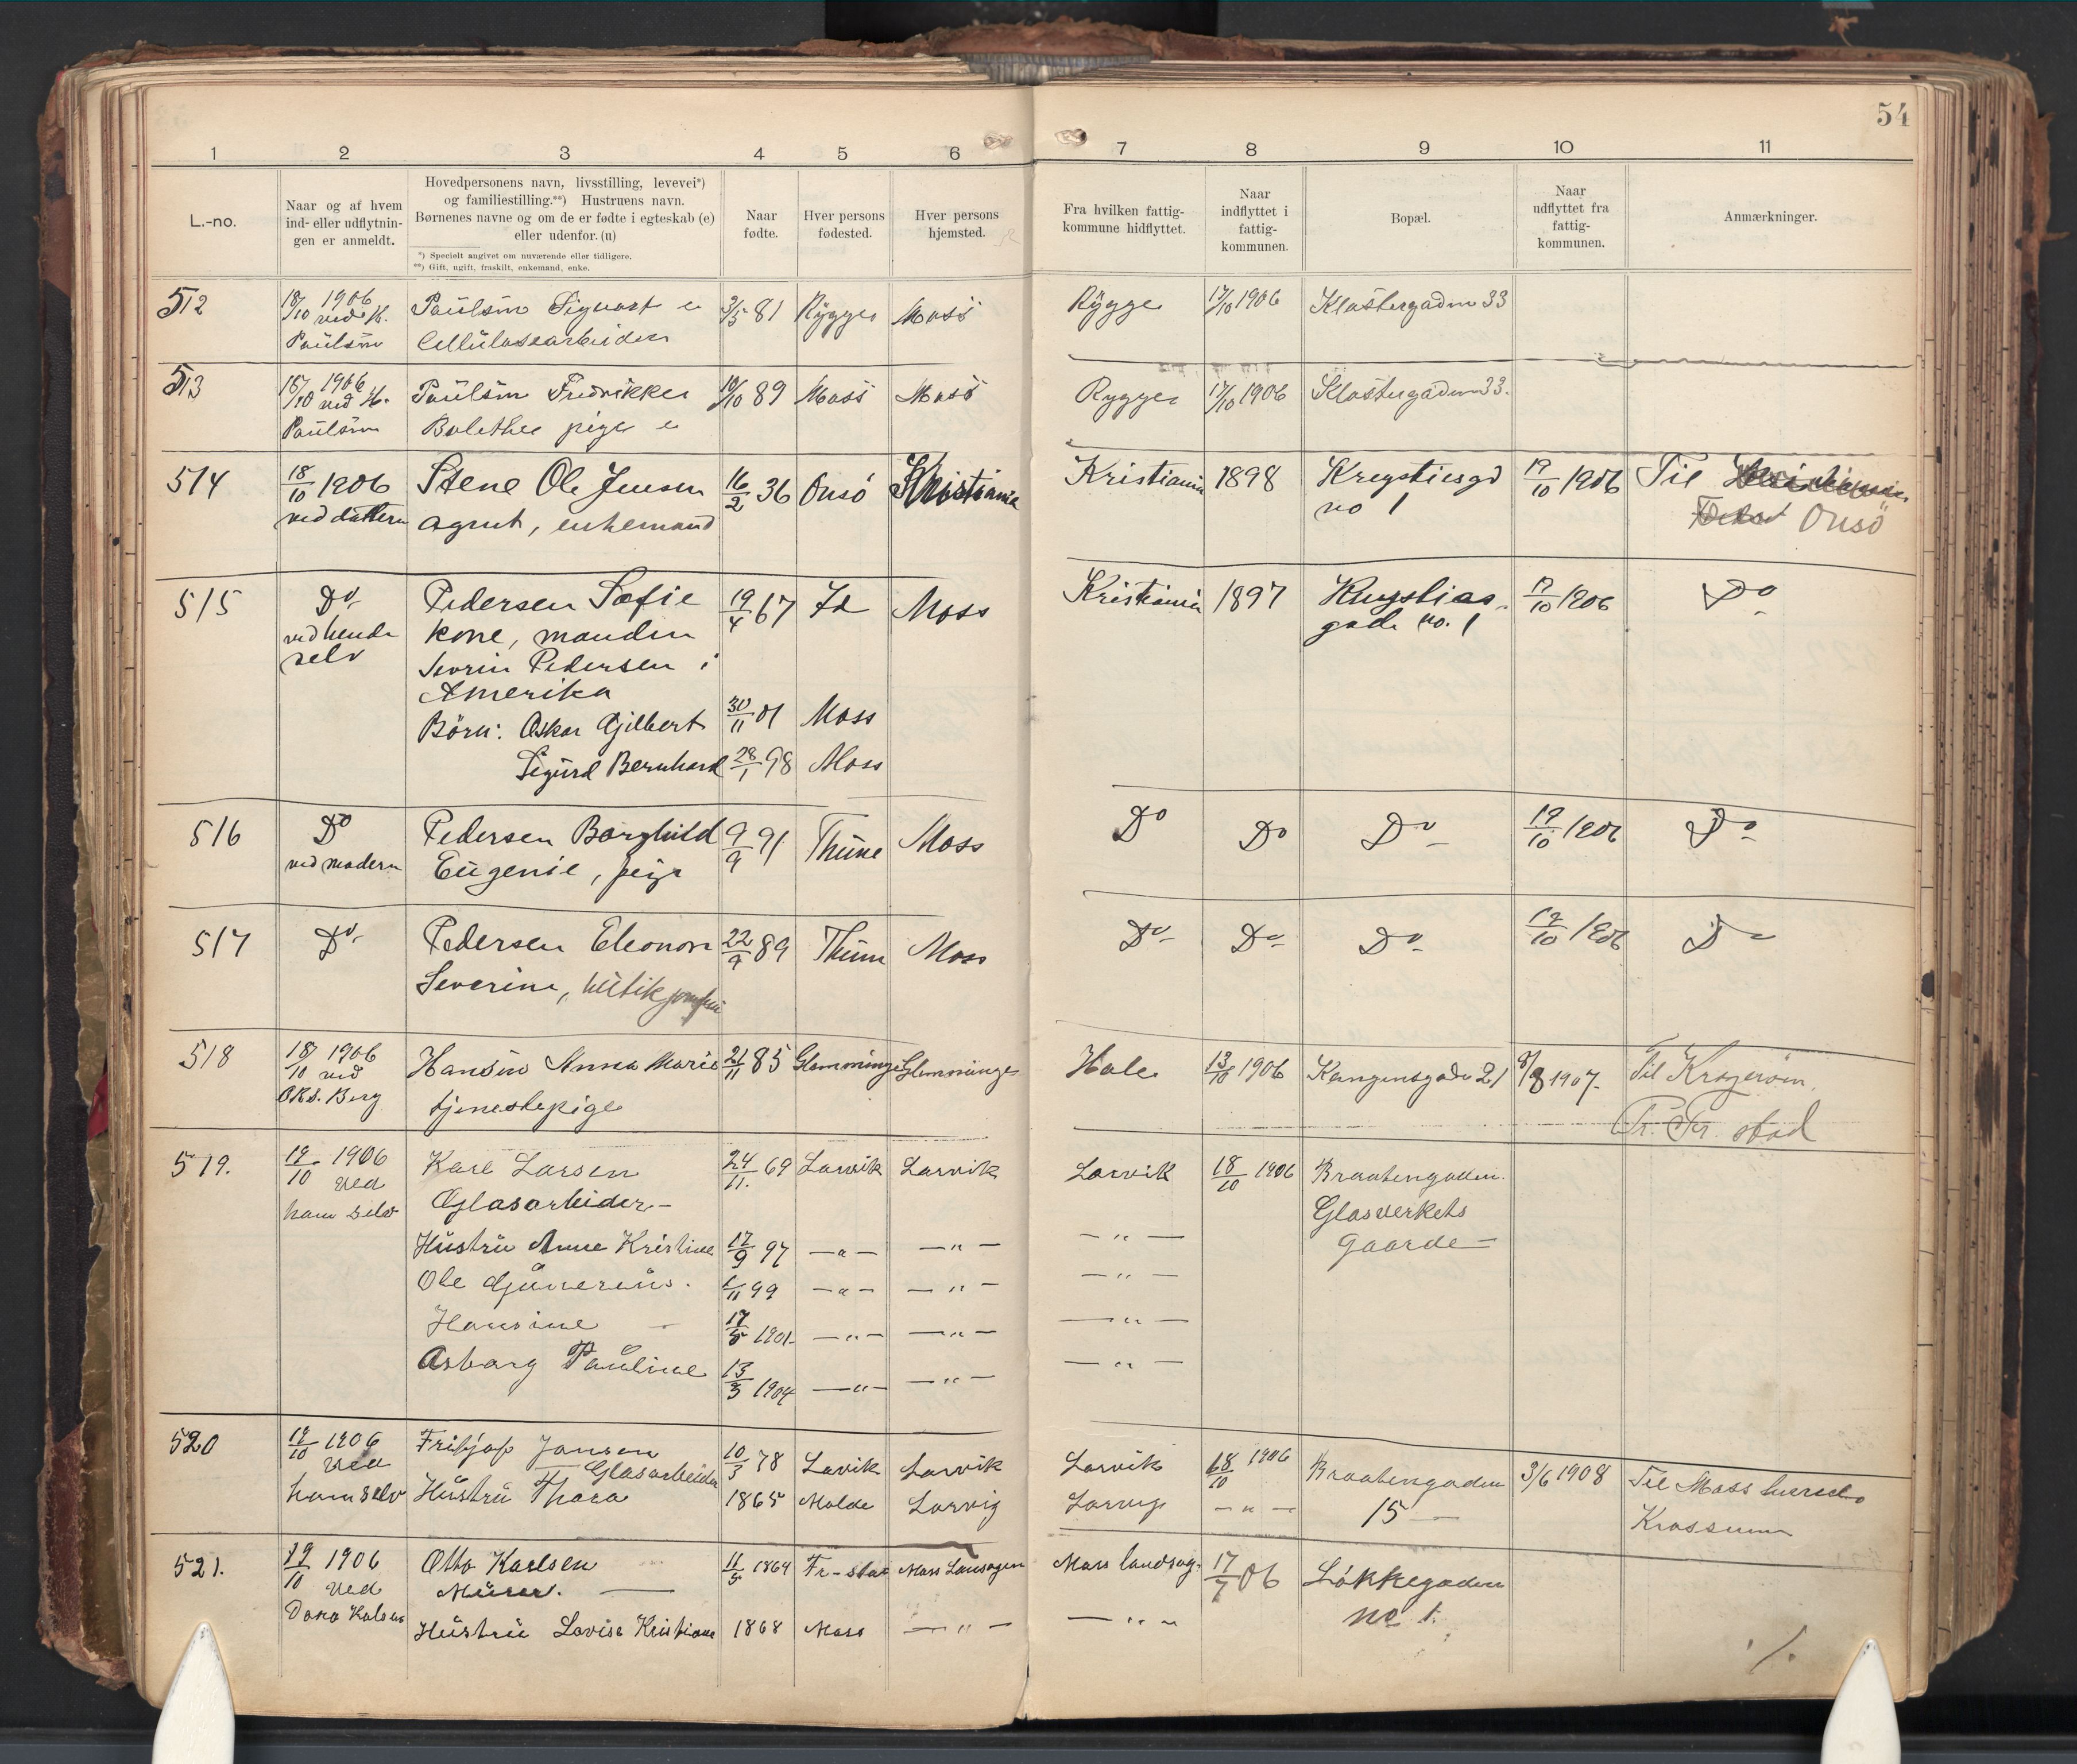 54
1 2 3 4 5 6 7 8 9 10 11
L.-no.
Naar og af hvem
ind- eller udflytnin-
gen er anmeldt.
Hovedpersonens navn, livsstilling, levevei*)
og familiestilling.**) Hustruens navn.
Børnenes navne og om de er fødte i egteskab (e)
eller udenfor. (u)
*) Specielt angivet om nuværende eller tidligere.
**) Gift, ugift, fraskilt, enkemand, enke.
Naar
fødte.
Hver persons
fødested.
Hver persons
hjemsted.
Fra hvilken fattig-
kommune hidflyttet.
Naar
indflyttet i
fattig-
kommunen.
Bopæl.
Naar
udflyttet fra
fattig-
kommunen.
Anmærkninger.
512 18/10 1906 Paulsen Sigvart e 3/5 81 Rygge Moss Rygge 17/10 1906 Klostergaden 33
ved H. Paulsen Cellulosearbeider
513 18/10 1906 Paulsen Fredrikke 10/10 89 Moss Moss Rygge 17/10 1906 Klostergaden 33.
ved H. Paulsen Bolethe pige e
514 18/10 1906 Stene Ole Jensen 16/2 36 Onsö Kristiania Kristiania 1898 19/10 1906 Til
ved dattern agent, enkemand no 1 Onsö
515 Do Pedersen Sofie 19/4 67 Id Moss Kristiania 1897 19/10 1906 Do
ved hende kone, manden gade no. 1
selv Severin Pedersen i
Amerika
Börn: Oskar Gjilbert 30/11 01 Moss
Sigurd Bernhard 28/1 98 Moss
516 Do Pedersen Borghild 9/9 91 Thune Moss Do Do Do 19/10 1906 Do
ved modern Eugenie, pige
517 Do Pedersen Eleonore 22/9 89 Thune Moss Do Do Do 19/10 1906 Do
Severine, butikjomfru
518 18/10 1906 Hansen Anna Marie 21/11 85 Glemminge Glemminge Hole 13/10 1906 Kongensgade 21 1907. Til
ved O.Rs. Berg tjenestepige Fr. stad
519. 19/10 1906 Karl Larsen 24/11. 69 Larvik Larvik Larvik 18/10 1906 Braatengaden.
ved Glasarbeider – Glasverkets
ham selv Gaarde –
Hustru Anne Kristine 17/9 97 — " — — " — — " —
Ole Gjunerius. 1/11 99 — " — — " — — " —
Hansine – 17/5 1901 — " — — " — — " —
Asbarg Pauline 13/3 1904 — " — — " — — " —
520 19/10 1906 Fritjof Jansen 10/3 78 Lavik Larvik Larvik 18/10 1906 Braatengaden 3/6 1908 Til Moss
ved Glasarbeider
ham selv Hustru Thora 1865 Molde Larvig Larvig — " — 15 – Krossern
521. 19/10 1906 Otto Karlsen 11/5 1864 Fr-stad Moss Landsogen Moss landsog. 17/7 06 Løkkegaden
ved Murer. — no 1.
Hustru Lovise Kristiane 1868 Moss — " — — " —